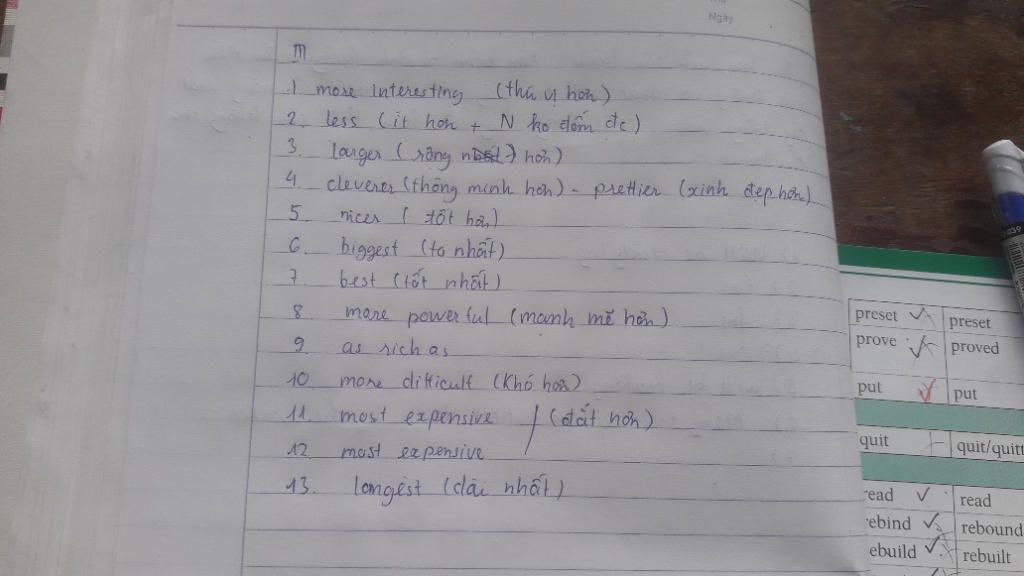 Ngày
III
1 more interesting (thú vị hơn)
2. less (ít hơn + N ko đếm đc)
3. larger (rộng hơn)
4. cleverer (thông minh hơn) - prettier (xinh đẹp hơn)
5. nicer (tốt hơn)
6. biggest (to nhất)
7. best (tốt nhất)
8 more powerful (mạnh mẽ hơn)
9. as rich as
10 more difficult (khó hơn)
11. most expensive (đắt hơn)
12. most expensive
13. longest (dài nhất)
039
preset preset
prove proved
put put
quit quit/quitt
read read
rebind rebound
ebuild rebuilt